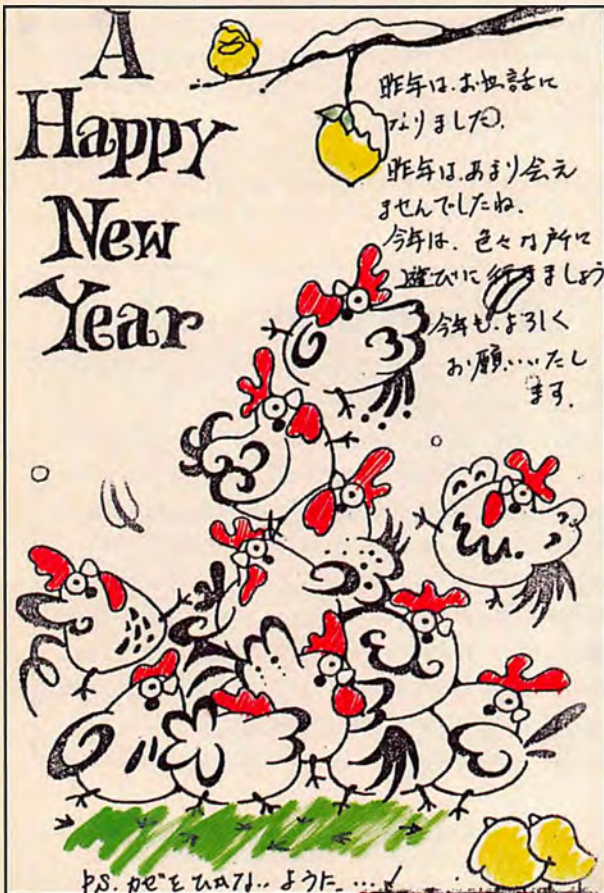 A
Happy
New
Year
昨年は、お世話に
なりました。
昨年は、あまり会え
ませんでしたね。
今年は、色々な所に
遊びに行きましょう
今年も、よろしく
お願いいたし
ます。
P.S. カゼをひかないように…